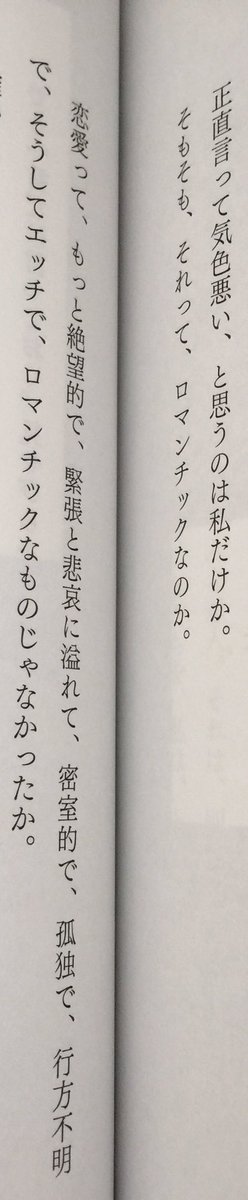 正直言って気色悪い、と思うのは私だけか。
そもそも、それって、ロマンチックなのか。
恋愛って、もっと絶望的で、緊張と悲哀に溢れて、密室的で、孤独で、行方不明
で、そうしてエッチで、ロマンチックなものじゃなかったか。